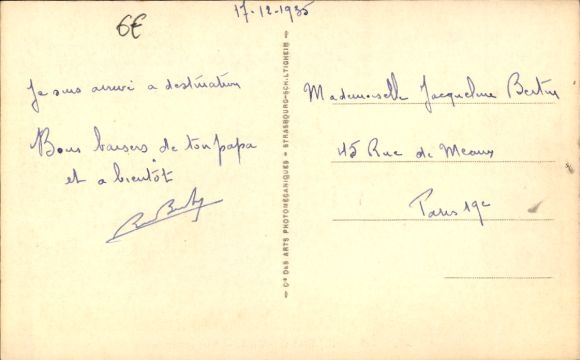 17-12-1935
6€
Je suis arrivé a destination
Bons baisers de ton papa
et a bientôt
Mademoiselle Jacqueline Bertin
45 Rue de Meaux
Paris 19e
Cie DES ARTS PHOTOMÉCANIQUES - STRASBOURG-SCHILTIGHEIM